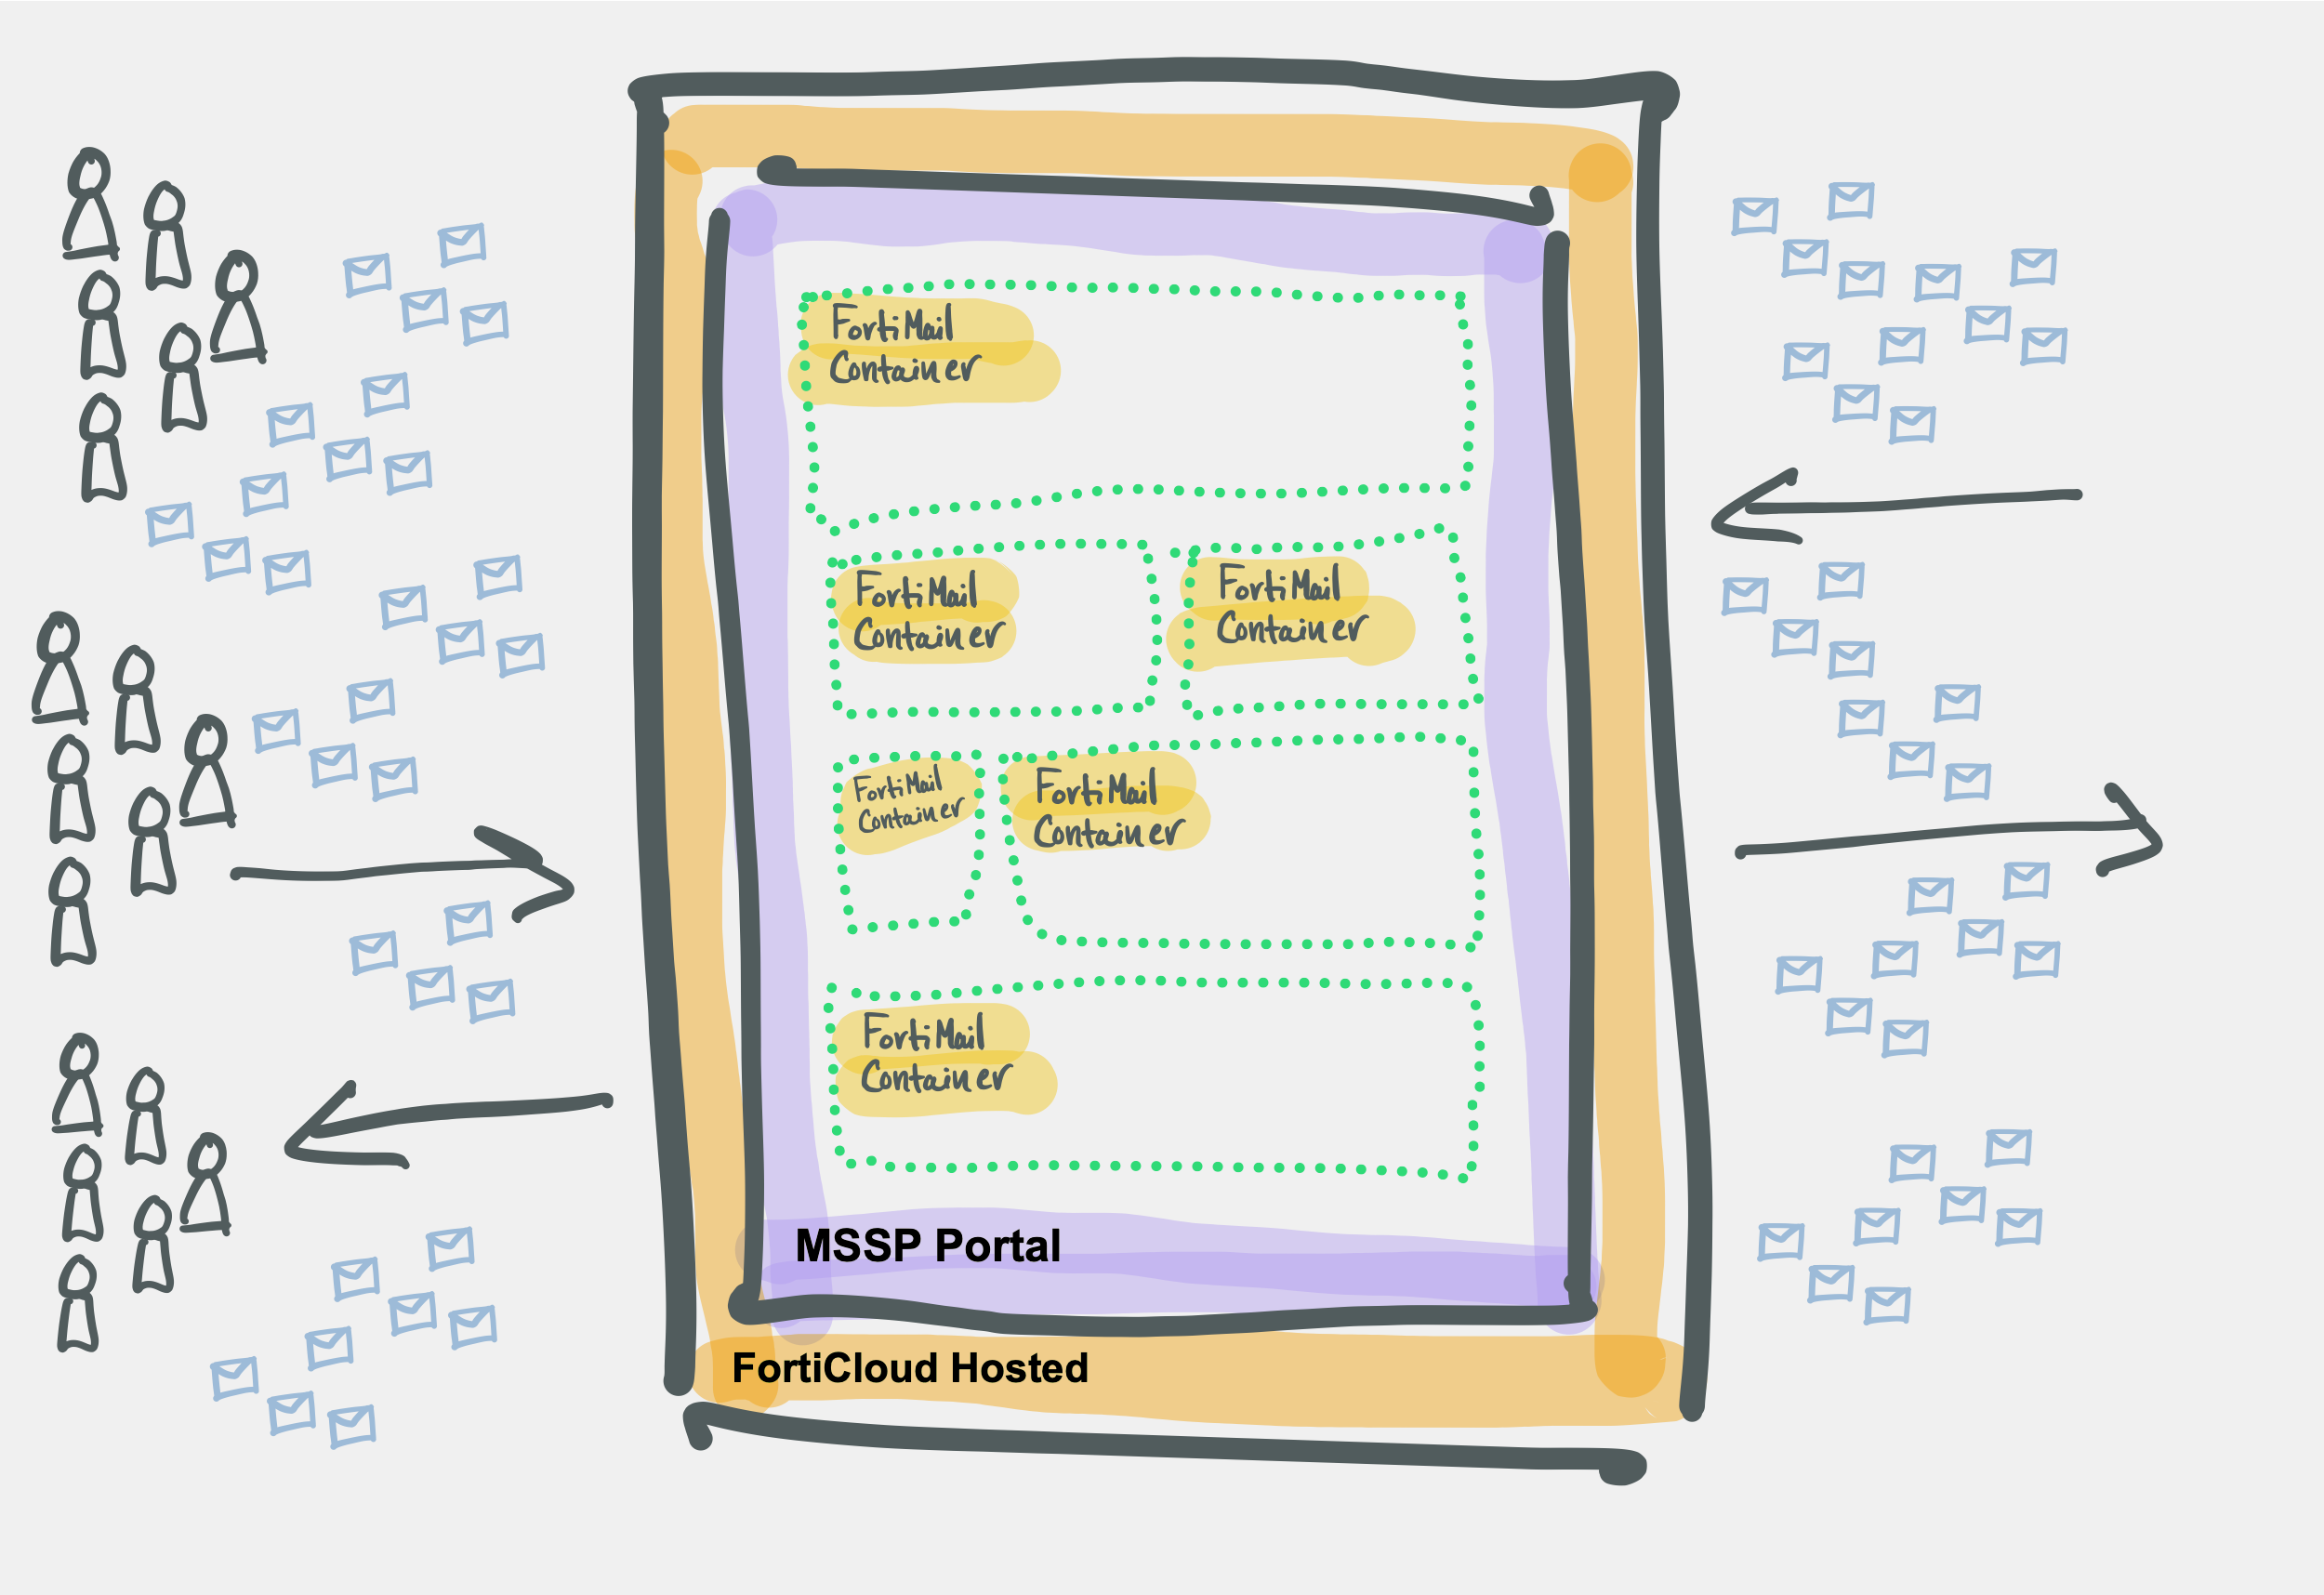 FortiMail
Container
FortiMail
Container
FortiMail
Container
FortiMail
Container
FortiMail
Container
FortiMail
Container
MSSP Portal
FortiCloud Hosted